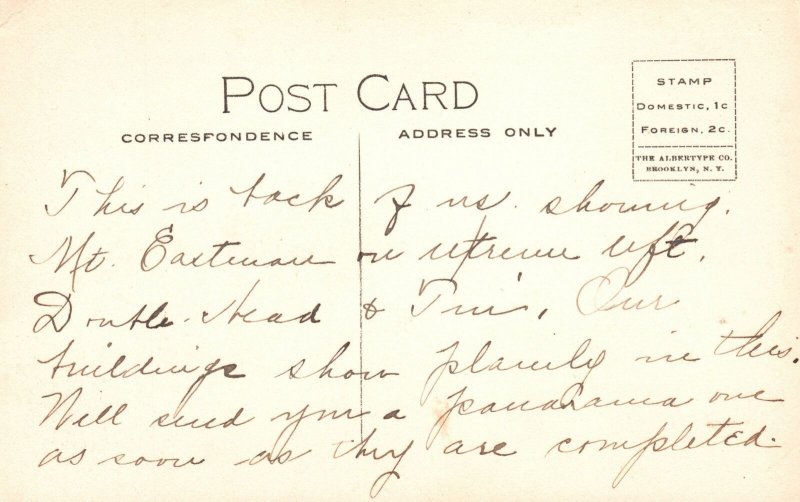 POST CARD
CORRESPONDENCE
ADDRESS ONLY
STAMP
DOMESTIC, 1C
FOREIGN, 2C.
THE ALBERTYPE CO.
BROOKLYN, N. Y.
This is back of us. showing.
Mt. Eastman on extreme left.
Double-Head & Tin. Our
buildings show plainly in this.
Will send you a panarama one
as soon as they are completed.